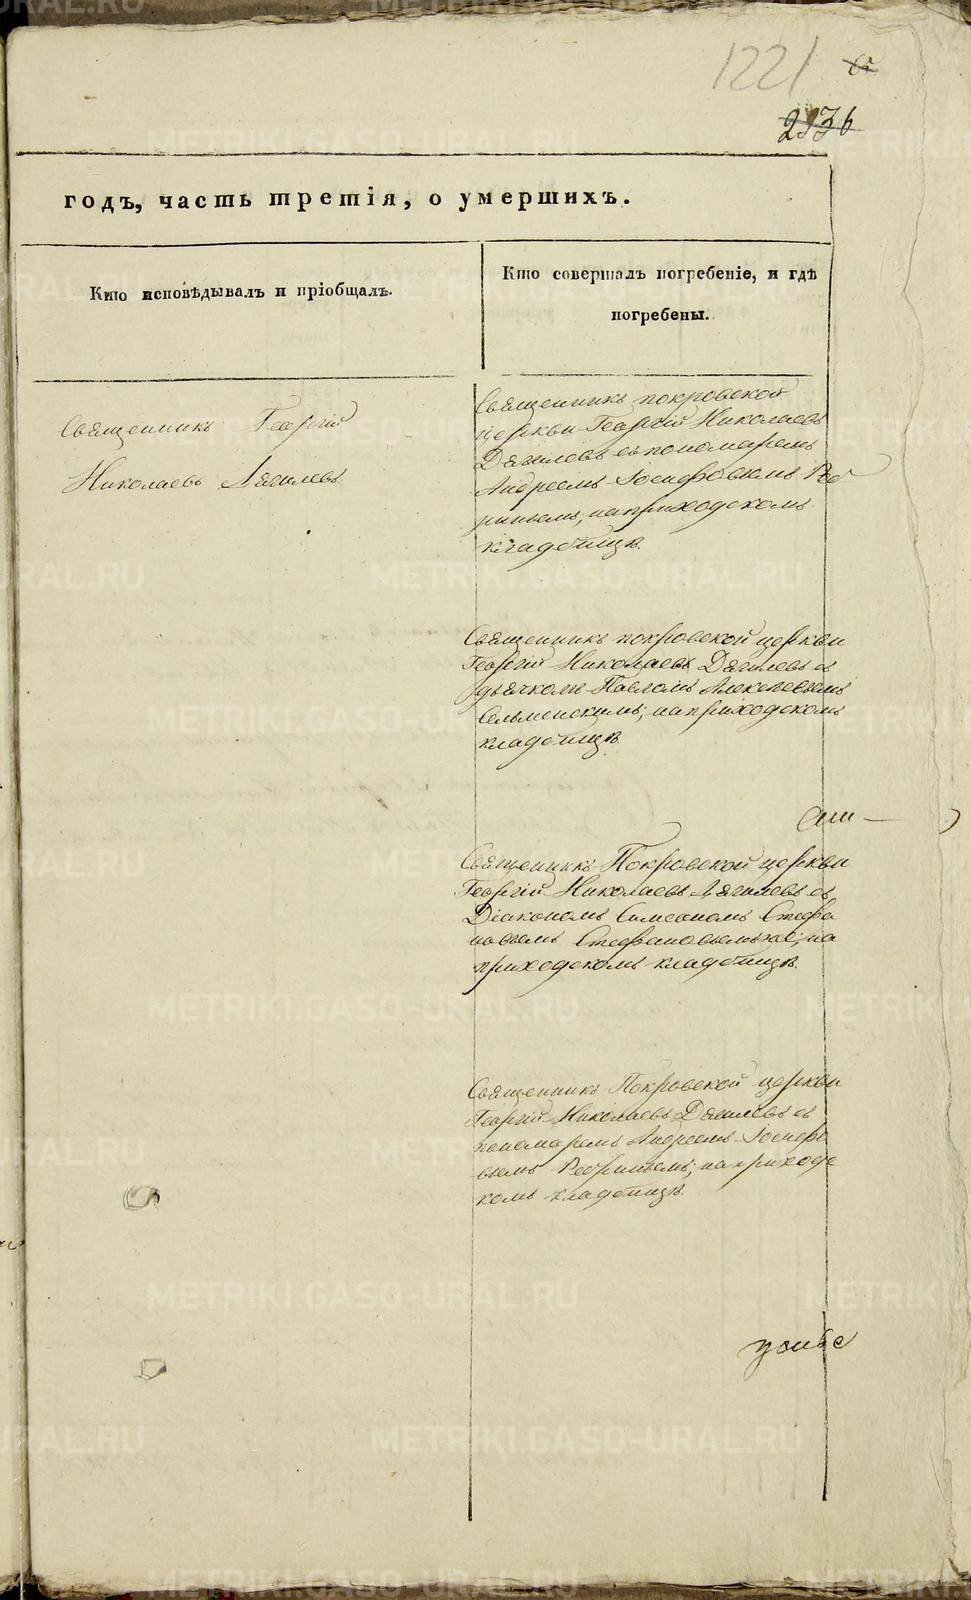 1221
2936
годъ, часть третія, о умершихъ.
Кто исповѣдывалъ и пріобщалъ.
Кто совершалъ погребеніе, и гдѣ
погребены.
Священникъ Георгій
Николаевъ Дягилевъ
Священникъ покровской
церкви Георгій Николаевъ
Дягилевъ съ пономаремъ
Андреемъ Іосифовымъ
на приходскомъ
кладбищѣ.
Священникъ покровской церкви
Георгій Николаевъ Дягилевъ съ
дьячкомъ Павломъ Алексѣевымъ
на приходскомъ
кладбищѣ
Священникъ Покровской церкви
Георгій Николаевъ Дягилевъ съ
Діакономъ Симеономъ Стефа
новымъ Стефановымъ на
приходскомъ кладбищѣ.
Священникъ Покровской церкви
Георгій Николаевъ Дягилевъ съ
пономаремъ Андреемъ Іосифо
вымъ на приходс
комъ кладбищѣ.
METRIKI.GASO-URAL.RU